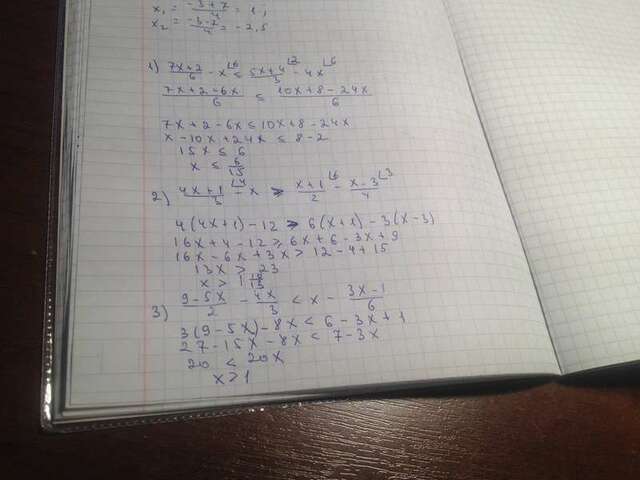 x₁ = (-3+7)/4 = 1;
x₂ = (-3-7)/4 = -2,5
1) (7x+2)/6 - x ≤ (5x+4)/3 - 4x
(7x+2-6x)/6 ≤ (10x+8-24x)/6
7x+2-6x ≤ 10x+8-24x
x-10x+24x ≤ 8-2
15x ≤ 6
x ≤ 6/15
2) (4x+1)/3 - x > (x+1)/2 - (x-3)/4
4(4x+1)-12 > 6(x+1)-3(x-3)
16x+4-12 > 6x+6-3x+9
16x-6x+3x > 12-4+15
13x > 23
x > 1 10/13
3) (9-5x)/2 - 4x/3 < x - (3x-1)/6
3(9-5x)-8x < 6-3x+1
27-15x-8x < 7-3x
20 < 20x
x > 1